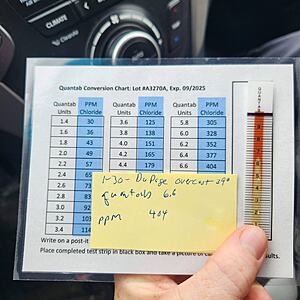 CLIMATE
Quantab Conversion Chart: Lot #A3270A, Exp. 09/2025
Quantab Units PPM Chloride Quantab Units PPM Chloride Quantab Units PPM Chloride
1.4 30 3.6 125 5.8 305
1.6 36 3.8 138 6.0 328
1.8 43 4.0 151 6.2 352
2.0 49 4.2 165 6.4
2.2 57 4.4 179 6.6 404
2.4 65
2.6 73
2.8 83
3.0 92
3.2 103
3.4 114
1-30- DuPage overcast
quantab 6.6
ppm 404
Write on a post-it
Place completed test strip in black box and take a picture of